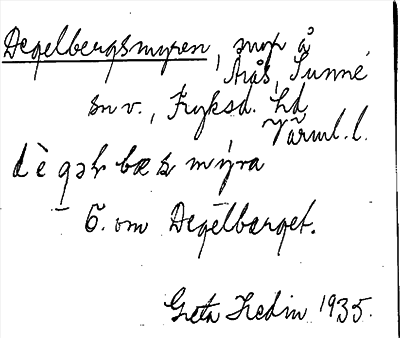 Degelbergsmyren, myr å
Årås, Sunne
sn v., Fryksd. hd
Värml. l.
dè gəl bæ ʂ mýra
Ö. om Degelbærget.
Greta Hedin 1935.